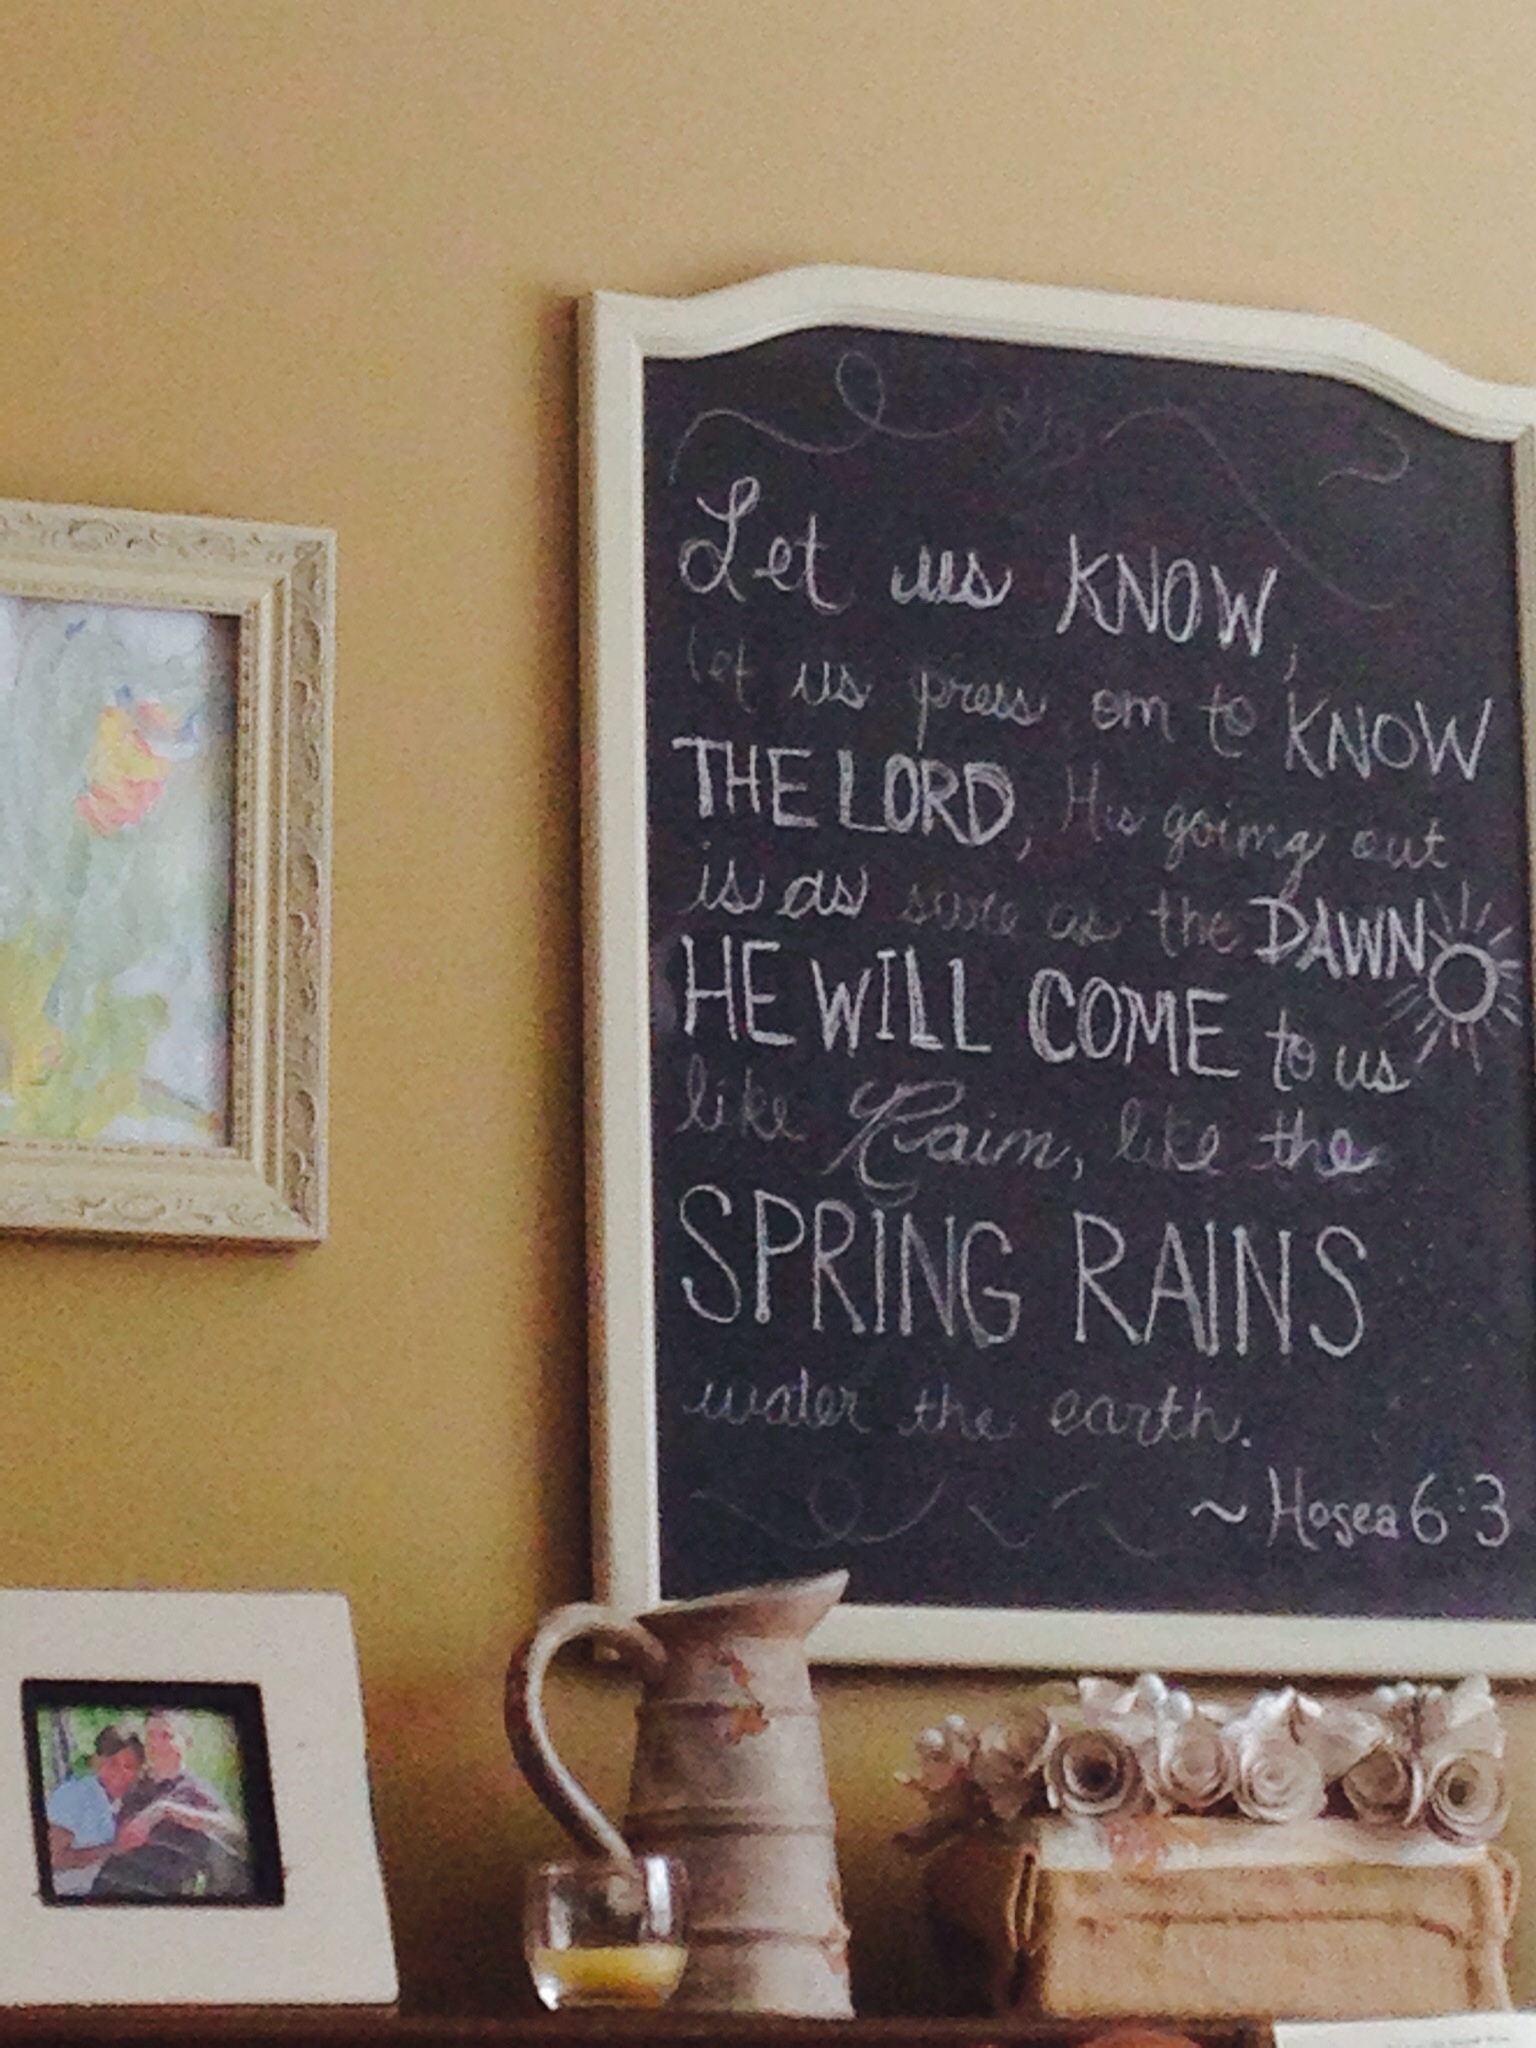 Let us KNOW,
let us press on to KNOW
THE LORD, His going out
is as sure as the DAWN
HE WILL COME to us
like Rain, like the
SPRING RAINS
water the earth.
~ Hosea 6:3